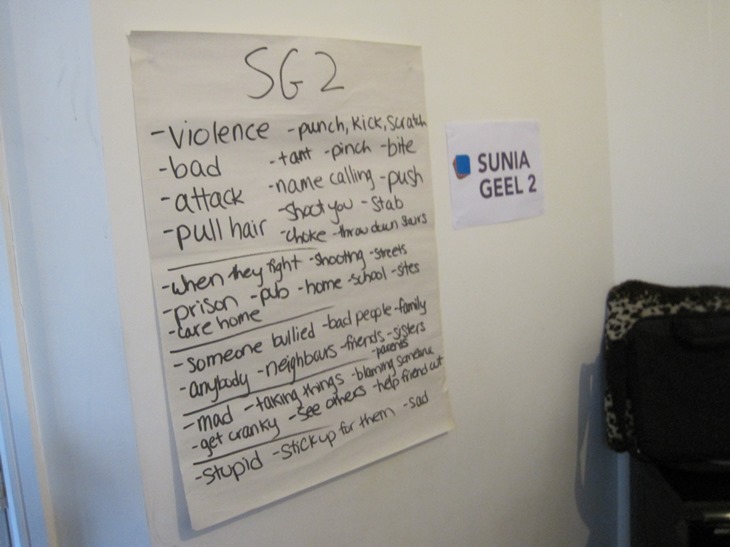 SG2
-violence -punch, kick, scratch
-bad -tant -pinch -bite
-attack -name calling -push
-pull hair -shoot you -stab
-choke -throw down stairs
-when they fight -shooting -streets
-prison -pub -home -school -sites
-care home
-someone bullied -bad people -family
-anybody -neighbours -friends -sisters
-parents
-mad -taking things -blaming someone
-get cranky -see others -help friend out
-stupid -stick up for them -sad
SUNIA
GEEL 2